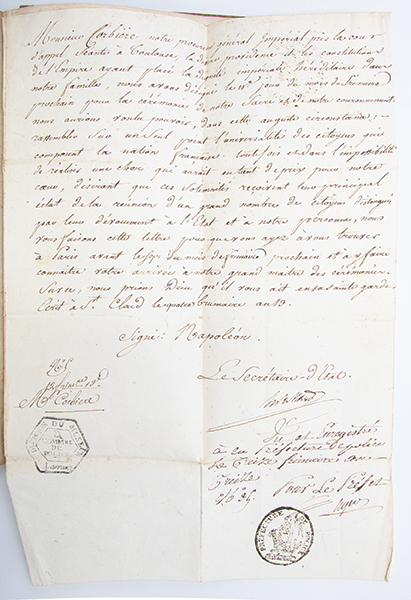 Monsieur Corbière, notre procureur général Impérial près la cour
d'appel séante à Toulouse, la divine providence et les constitutions
de l'Empire ayant placé la dignité impériale héréditaire dans
notre famille, nous avons désigné le jour du mois de frimaire
prochain pour la cérémonie de notre Sacre et de notre couronnement.
nous aurions voulu pouvoir, dans cette auguste circonstance,
rassembler sur un seul point l'universalité des citoyens qui
composent la nation française. toutefois et dans l'impossibilité
de réaliser une chose qui aurait eu tant de prix pour notre
cœur, désirant que ces solemnités reçoivent leur principal
éclat de la réunion d'un grand nombre de citoyens distingués
par leur dévouement à l'Etat et à notre personne, nous
vous faisons cette lettre pour que vous ayez à vous trouver
à Paris avant le du mois de frimaire prochain et à y faire
connaître votre arrivée à notre grand maître des cérémonies.
Sur ce, nous prions Dieu qu'il vous ait en sa sainte garde.
Ecrit à St. Cloud le quatre brumaire an 13.
Signé: Napoléon.
Le Secrétaire-d'Etat
Mr. Corbière
Vu et Enregistré
à la Préfecture de police
Le treize frimaire an
treize
Pour Le Préfet
PREFECTURE DE POLICE